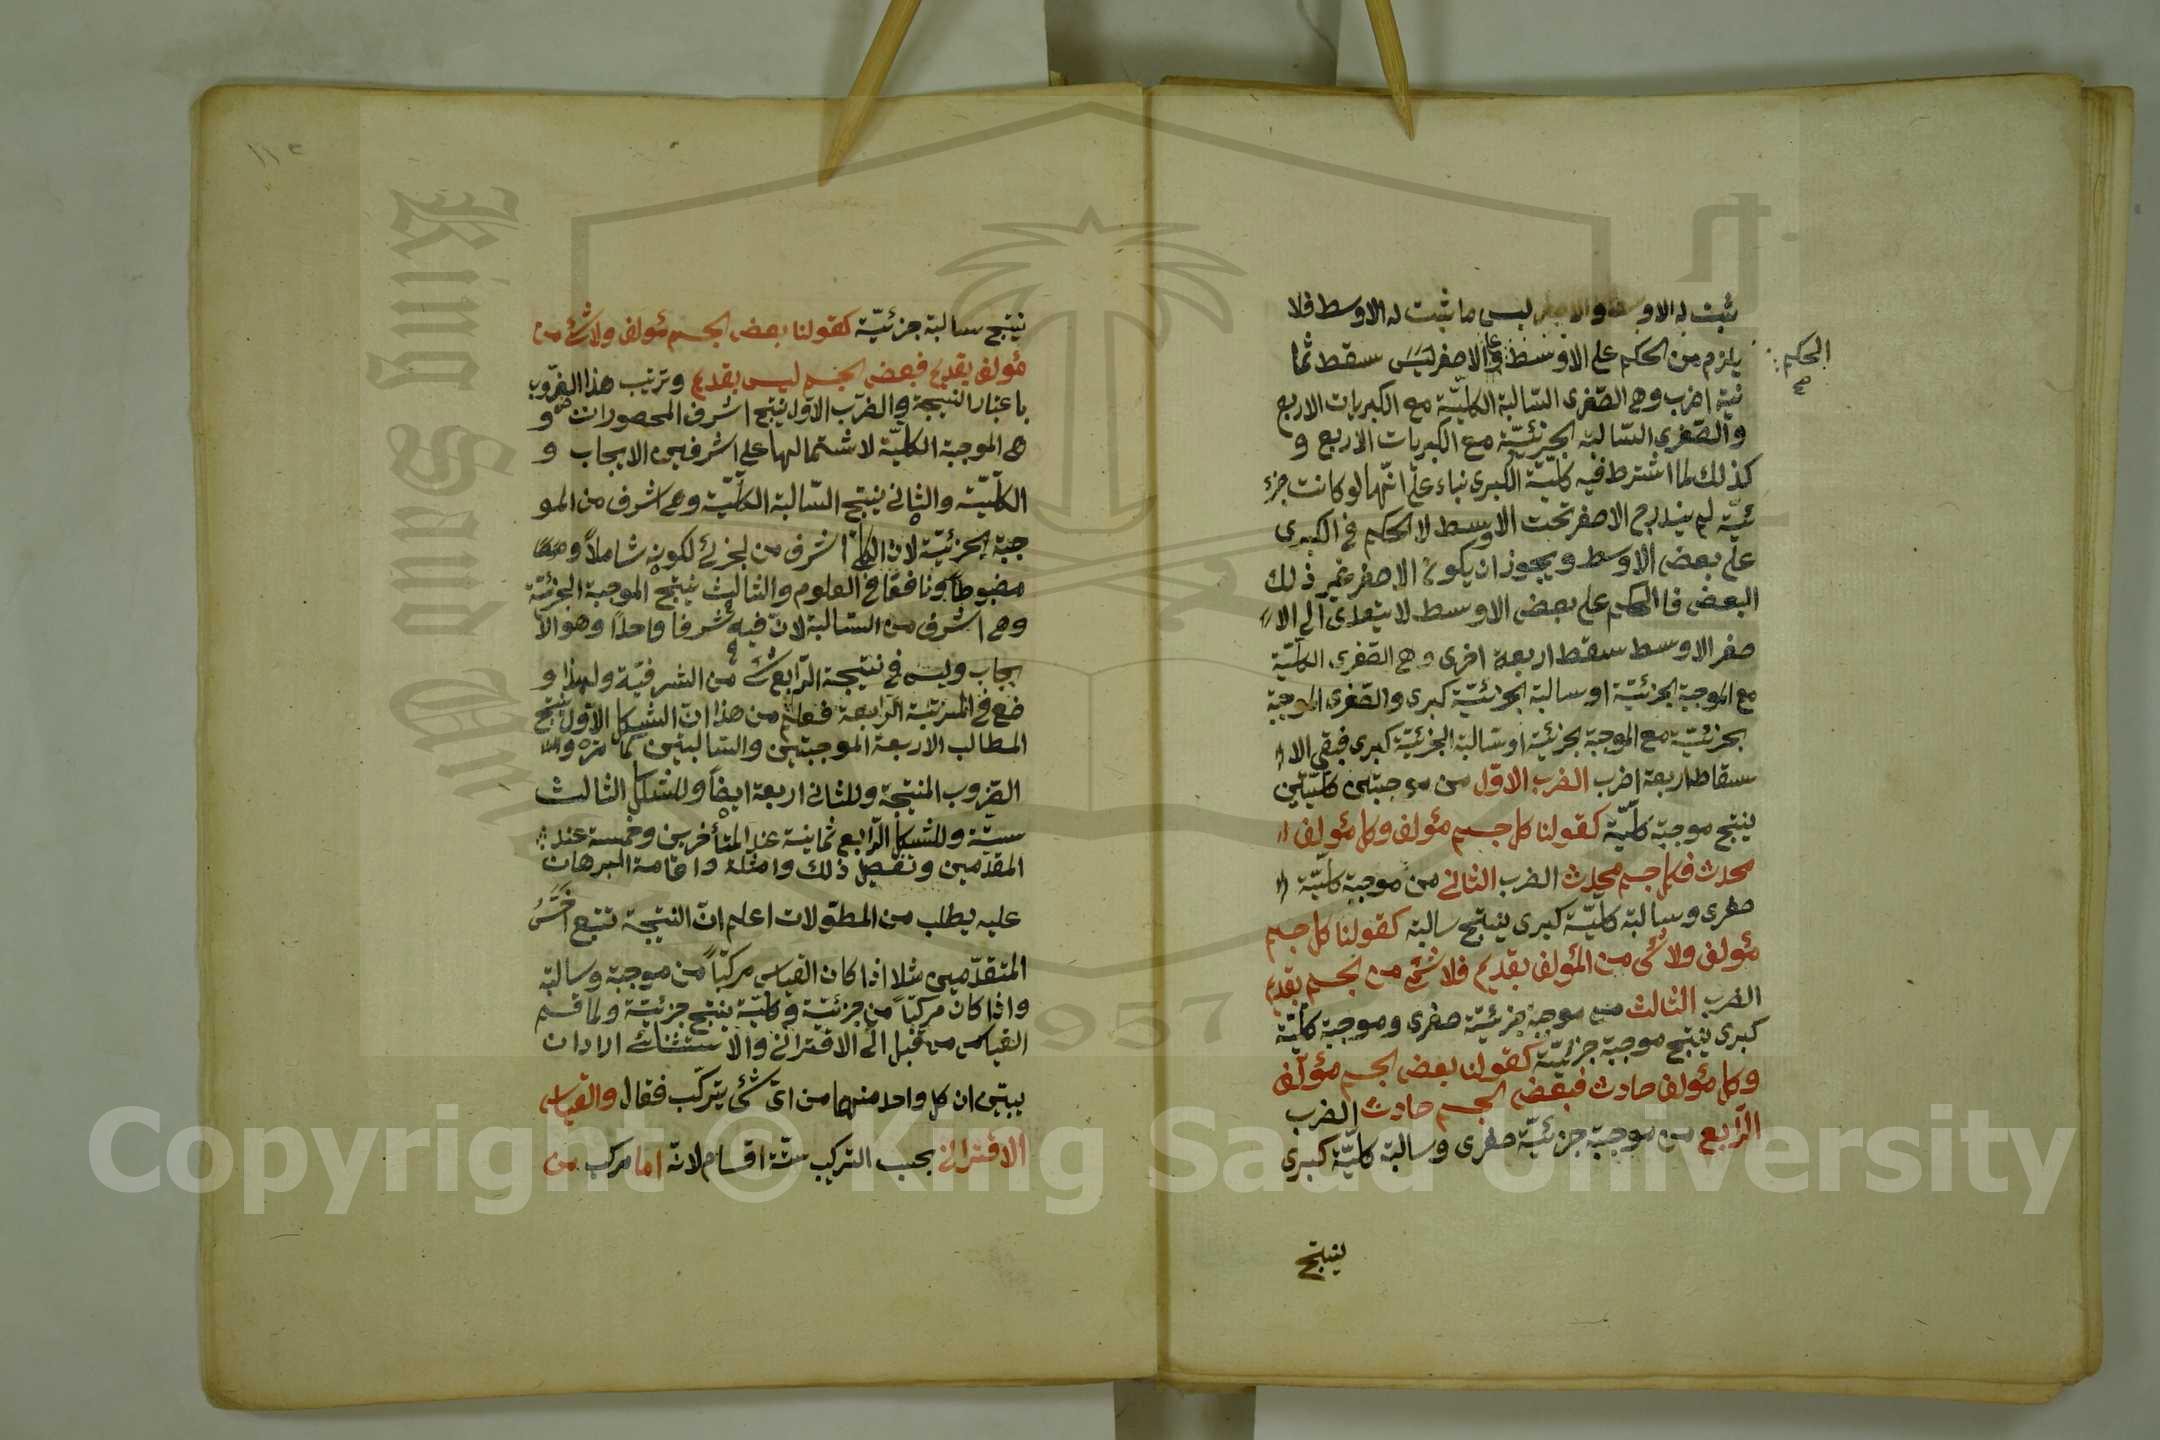 ثبت له الاوسط والاصغر ليس ما ثبت له الاوسط فلا
يلزم من الحكم على الاوسط وعلى الاصغر ليس سقط ثما
الحكم
صح
نية اضرب وهى الصّغرى السّالبة الكليّة مع الكبريات الاربع
والصّغرى السّالبة الجزئيّة مع الكبريات الاربع و
كذلك لما اشترط فيه كليّة الكبرى بناء على انّها لو كانت جزء
ئيّة لم يندرج الاصغر تحت الاوسط لا الحكم فى الكبرى
على بعض الاوسط ويجوز ان يكون الاصغر غير ذلك
البعض فالحكم على بعض الاوسط لا يتعدى الى الا
صغر الاوسط سقط اربعة اخرى وهى الصّغرى الكليّة
مع الموجبة الجزئيّة او سالبة الجزئيّة كبرى والصّغرى الموجبة
جزئيّة مع الموجبة الجزئية او سالبة الجزئيّة كبرى فبقى الا
سقاط اربعة اضرب الضرب الاوّل من موجبتين كليّتين
ينتج موجبة كليّة كقولنا كل جسم مؤلف وكل مؤلف
محدث فكل جسم محدث الضرب الثانى من موجبة كليّة
صغرى وسالبة كليّة كبرى ينتج سالبة كقولنا كل جسم
مؤلف ولا شئ من المؤلف بقديم فلا شئ من الجسم بقديم
الضرب الثالث من موجبة جزئيّة صغرى وموجبة كليّة
كبرى ينتج موجبة جزئيّة كقولنا بعض الجسم مؤلف
وكل مؤلف حادث فبعض الجسم حادث الضرب
الرّابع من موجبة جزئيّة صغرى وسالبة كليّة كبرى
ينتج
١١٢
ينتج سالبة جزئيّة كقولنا بعض الجسم مؤلف ولا شئ من
مؤلف بقديم فبعض الجسم ليس بقديم وترتيب هذا الضّروب
باعتبار النتيجة والضّرب الاوّل ينتج اشرف المحصورات و
هى الموجبة الكليّة لاشتمالها على اشرفين الايجاب و
الكليّة والثانى ينتج السّالبة الكليّة وهى اشرف من المو
جبة الجزئيّة لان الكلى اشرف من الجزئى لكونه شاملاً و
مضبوطاً ونافعاً فى العلوم والثالث ينتج الموجبة الجزئيّة
وهى اشرف من السّالبة لانّ فيه شرفا واحداً وهو الا
يجاب وليس فى نتيجة الرّابع شئ من الشرفيّة ولهذا و
ضع فى المرتبة الرّابعة فعلم من هذا انّ الشكل الاوّل ينتج
المطالب الاربعة الموجبتين والسالبتين كما مرّ و
الضّروب المنتجة وللثانى اربعة ايضاً وللشكل الثالث
ستّة وللشكل الرّابع ثمانية عند المتأخرين وخمسة عند
المقدّمين وتفصيل ذلك وامثلة واقامة البرهان
عليه يطلب من المطوّلات اعلم انّ النتيجة تتبع اخسّ
المتقدّمين مثلا اذا كان القياس مركّباً من موجبة وسالبة
واذا كان مركّباً من جزئيّة وكليّة ينتج جزئيّة ولما قسم
القياس من قبل الى الاقترانى والاستثنائى اراد ان
يبيّن ان كل واحد منهما من اىّ شئ يتركّب فقال والقياس
الاقترانى بحسب التركيب ستّة اقسام لانه اما مركب من
King Saud University
1957
Copyright © King Saud University